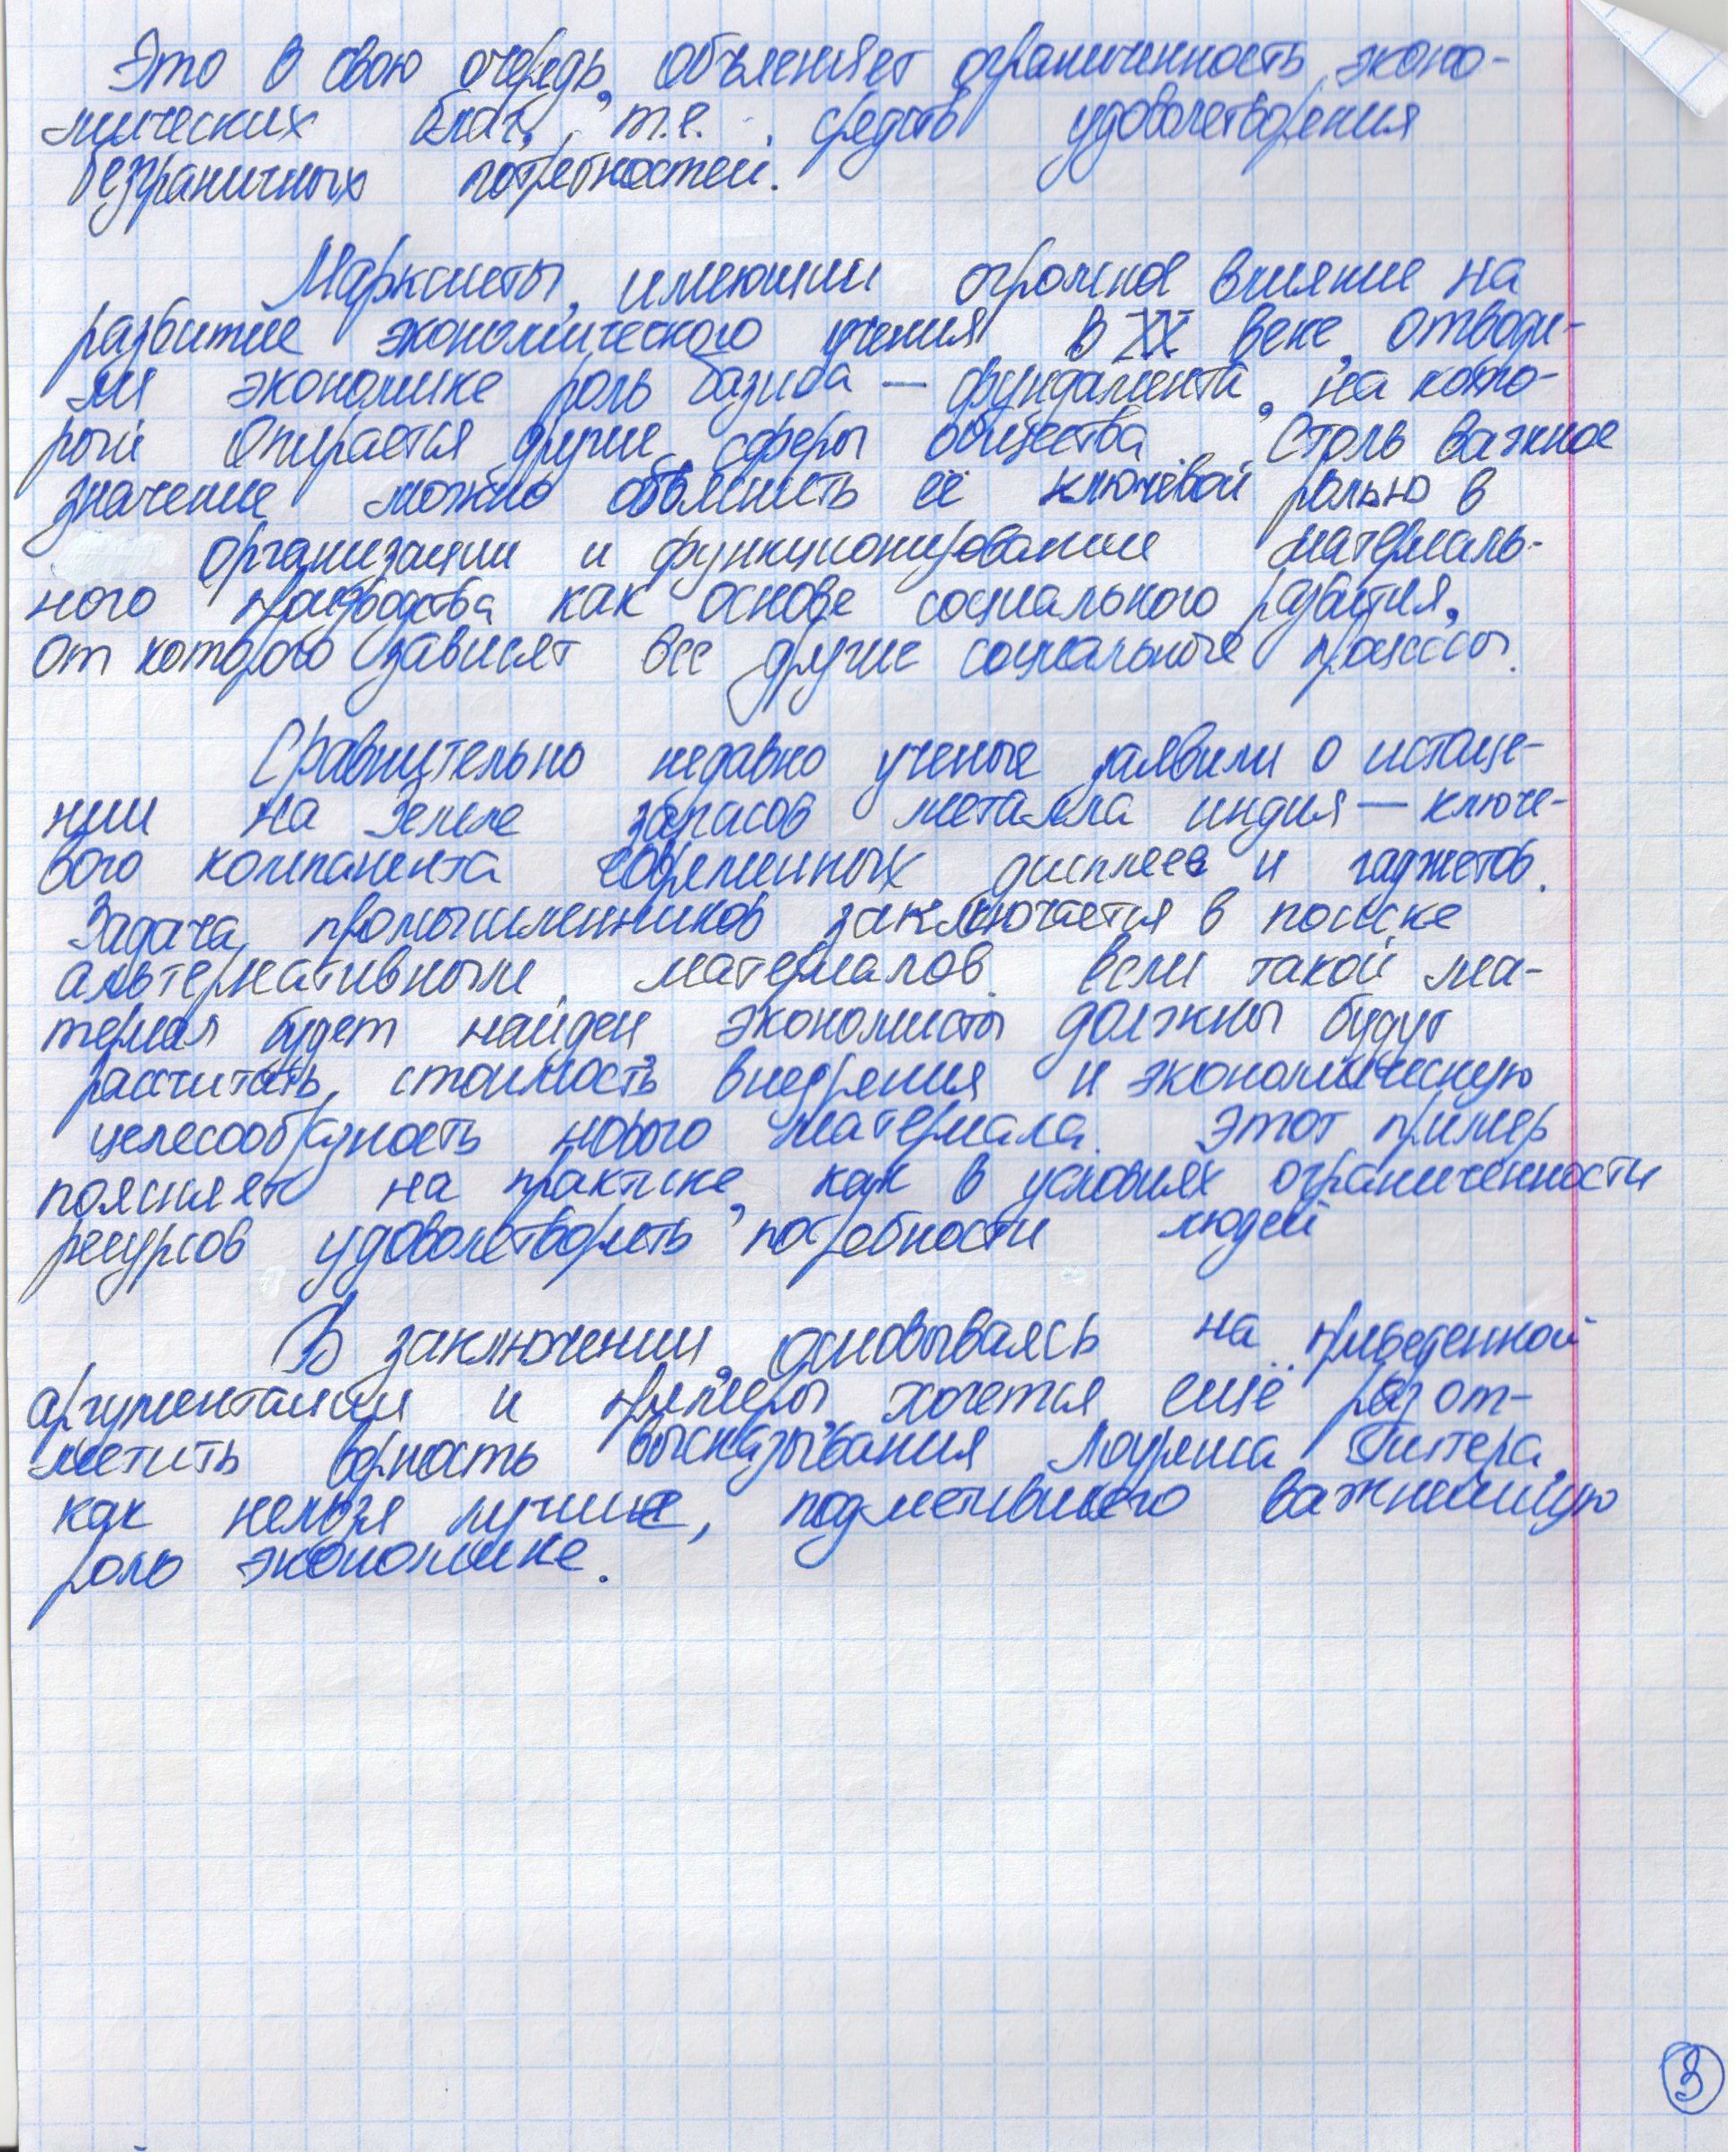 Это в свою очередь, объясняет ограниченность эконо-
мических благ, т.е. средств удовлетворения
безграничных потребностей.
Марксисты, имеющии огромное влияние на
развитие экономического учения в XX веке, отводи-
ли экономике роль базиса — фундамента, на кото-
рый опирается другие сферы общества. Столь важное
значение можно объяснить её ключевой ролью в
организации и функционировании материаль-
ного производства как основе социального развития,
от которого зависят все другие социальные процессы.
Сравнительно недавно ученые заявили о истоще-
нии на Земле запасов металла индия — ключе-
вого компанента современных дисплеев и гаджетов.
Задача промышленников заключается в поиске
альтернативным материалов. Если такой ма-
териал будет найден экономисты должны будут
рассчитать, стоимость внедрения и экономическую
целесообразность нового материала. Этот пример
поясняет на практике, как в условиях ограниченности
ресурсов удовлетворить потребности людей
В заключении, основываясь на приведенной
аргументации и примеры хочется ещё раз от-
метить верность высказывания Лоуренса Питера,
как нельзя лучше, подметившего важнейшую
роль экономике.
3